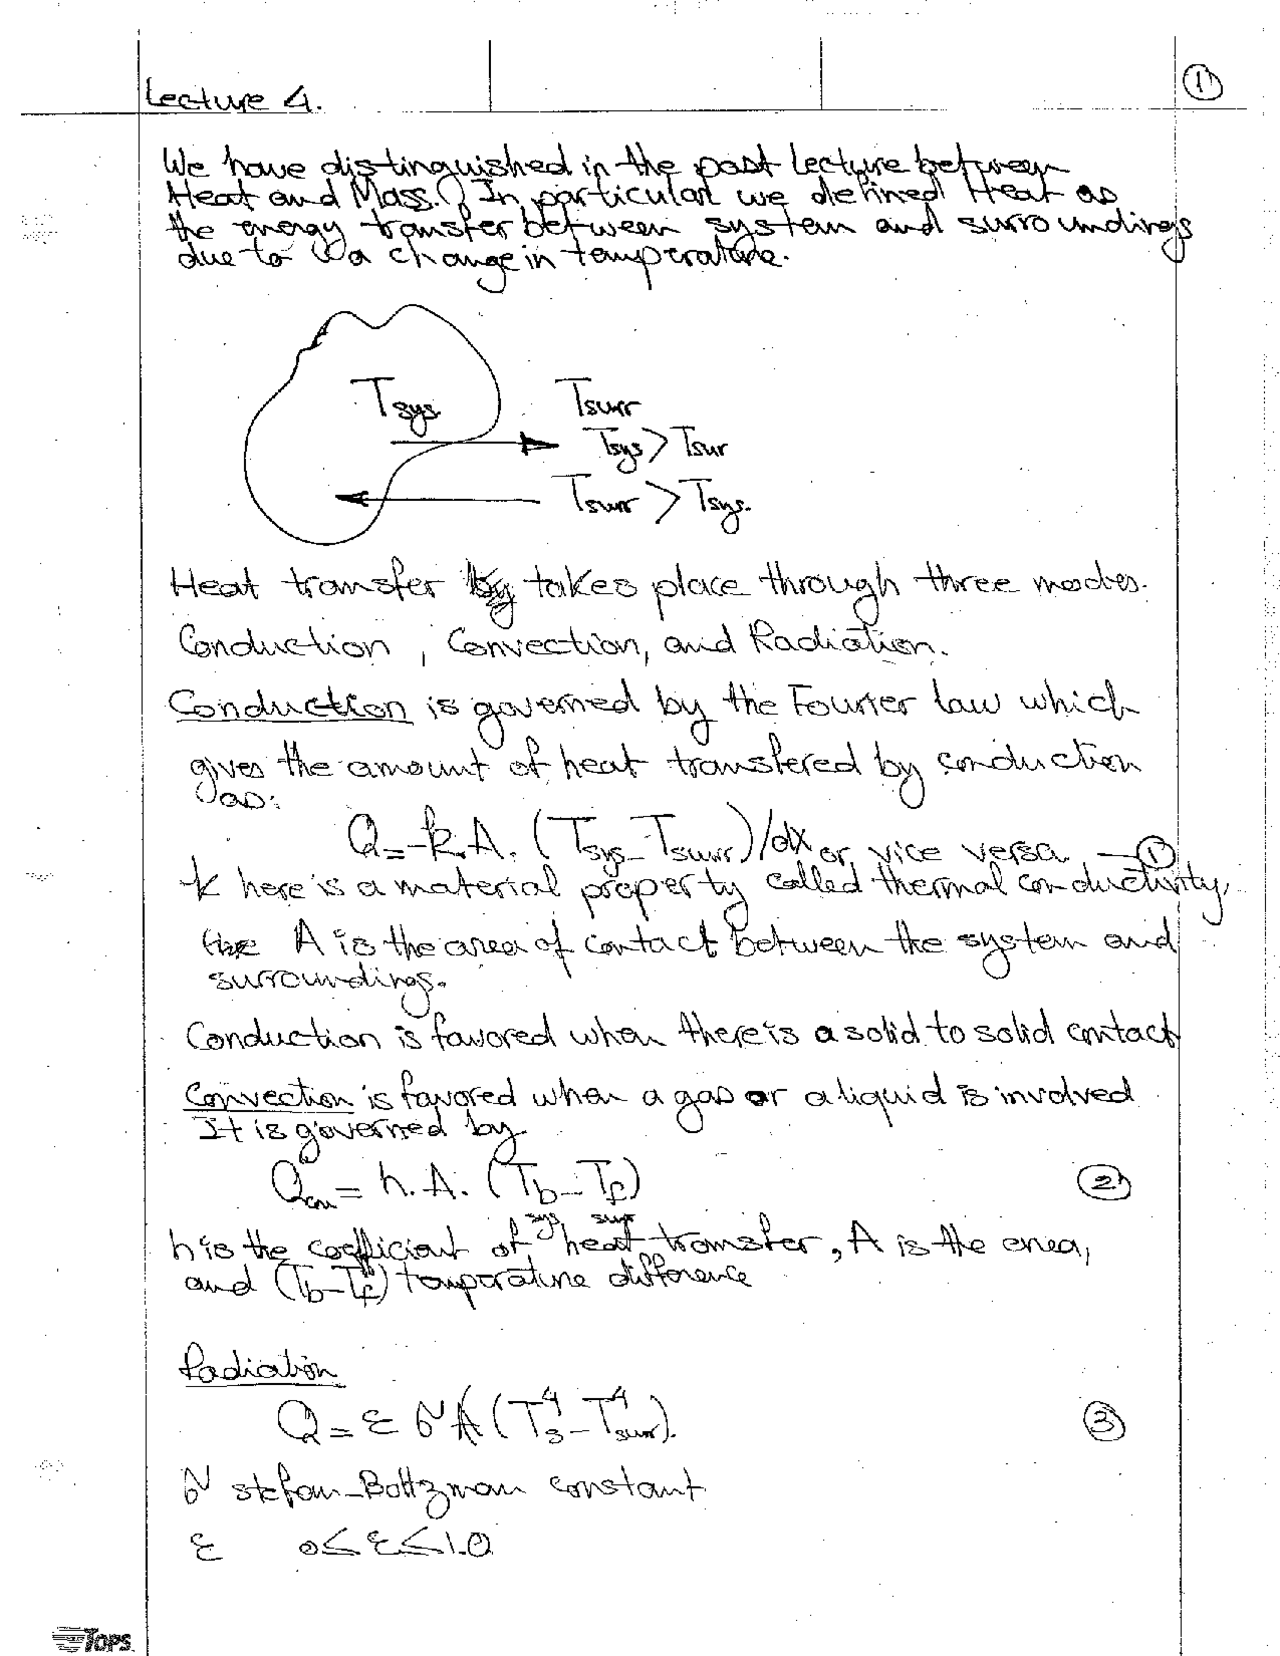 Lecture 4.
①
We have distinguished in the past lecture between
Heat and Mass. In particular we defined Heat as
the energy transfer between system and surroundings
due to a change in temperature.
Tsys. Tsurr
Tsys > Tsur
Tsurr > Tsys.
Heat transfer takes place through three modes.
Conduction, Convection, and Radiation.
Conduction is governed by the Fourier law which
gives the amount of heat transfered by conduction
as:
Q = -k.A. (Tsys - Tsurr)/dx or vice versa —①
k here is a material property called thermal conductivity,
A is the area of contact between the system and
surroundings.
Conduction is favored when there is a solid to solid contact
Convection is favored when a gas or a liquid is involved
It is governed by
Qcon = h. A. (Tb - Tf) ②
sys surr
h is the coefficient of heat transfer, A is the area,
and (Tb - Tf) temperature difference
Radiation
Q = ε σ A (Ts⁴ - Tsurr⁴). ③
σ stefan-Boltzman constant
ε 0 ≤ ε ≤ 1.0
TOPS